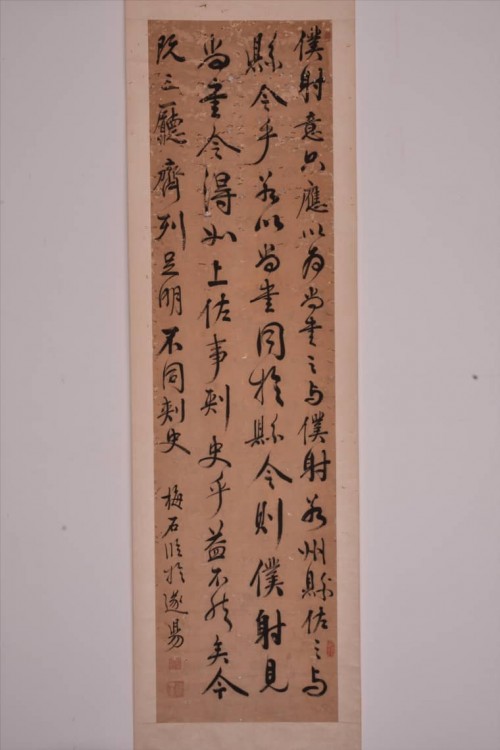 僕射意只應以為尚書之與僕射若州縣佐之與
縣令乎若以尚書同於縣令則僕射見
尚書令得如上佐事刺史乎益不然矣今
既三廳齊列足明不同刺史
梅石臨於